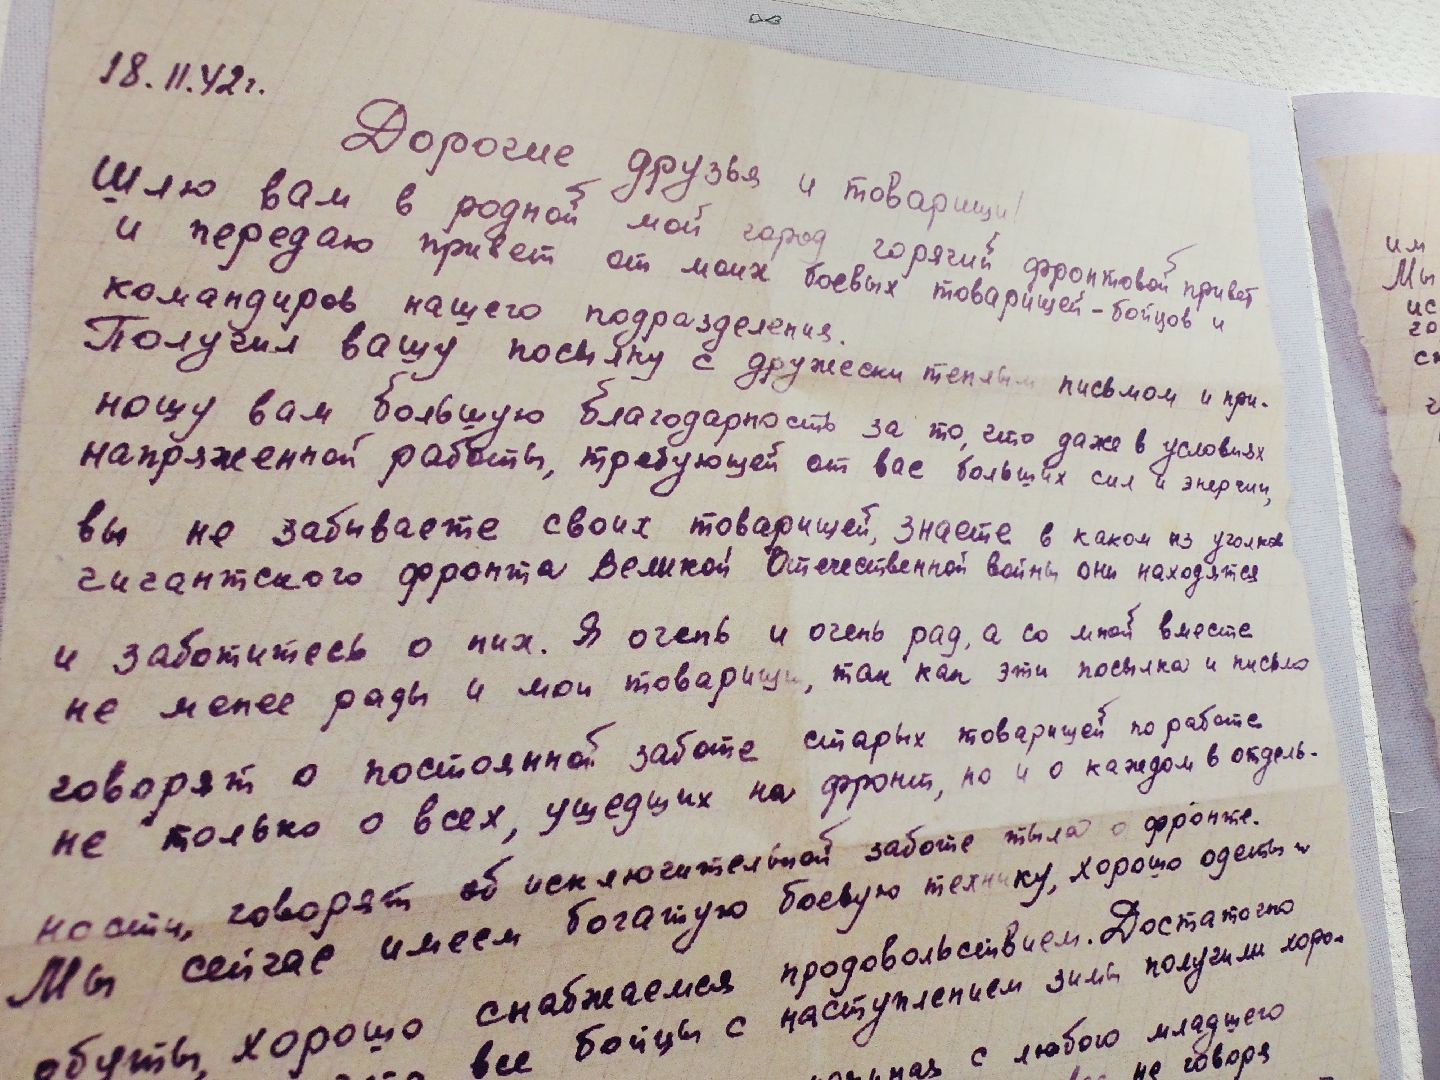 18.II.42г.
Дорогие друзья и товарищи!
Шлю вам в родной мой город горячий фронтовой привет
и передаю привет от моих боевых товарищей-бойцов и
командиров нашего подразделения.
Получил вашу посылку с дружески теплым письмом и при-
ношу вам большую благодарность за то, что даже в условиях
напряженной работы, требующей от вас больших сил и энергии,
вы не забываете своих товарищей, знаете в каком из уголков
гигантского фронта Великой Отечественной войны они находятся
и заботитесь о них. Я очень и очень рад, а со мной вместе
не менее рады и мои товарищи, так как эти посылка и письмо
говорят о постоянной заботе старых товарищей по работе
не только о всех, ушедших на фронт, но и о каждом в отдель-
ности, говорят об исключительной заботе тыла о фронте.
Мы сейчас имеем богатую боевую технику, хорошо одеты и
обуты, хорошо снабжаемся продовольствием. Достаточно
все бойцы с наступлением зимы получили хоро-
с любого младшего
не говоря
им
Мы
ис
го